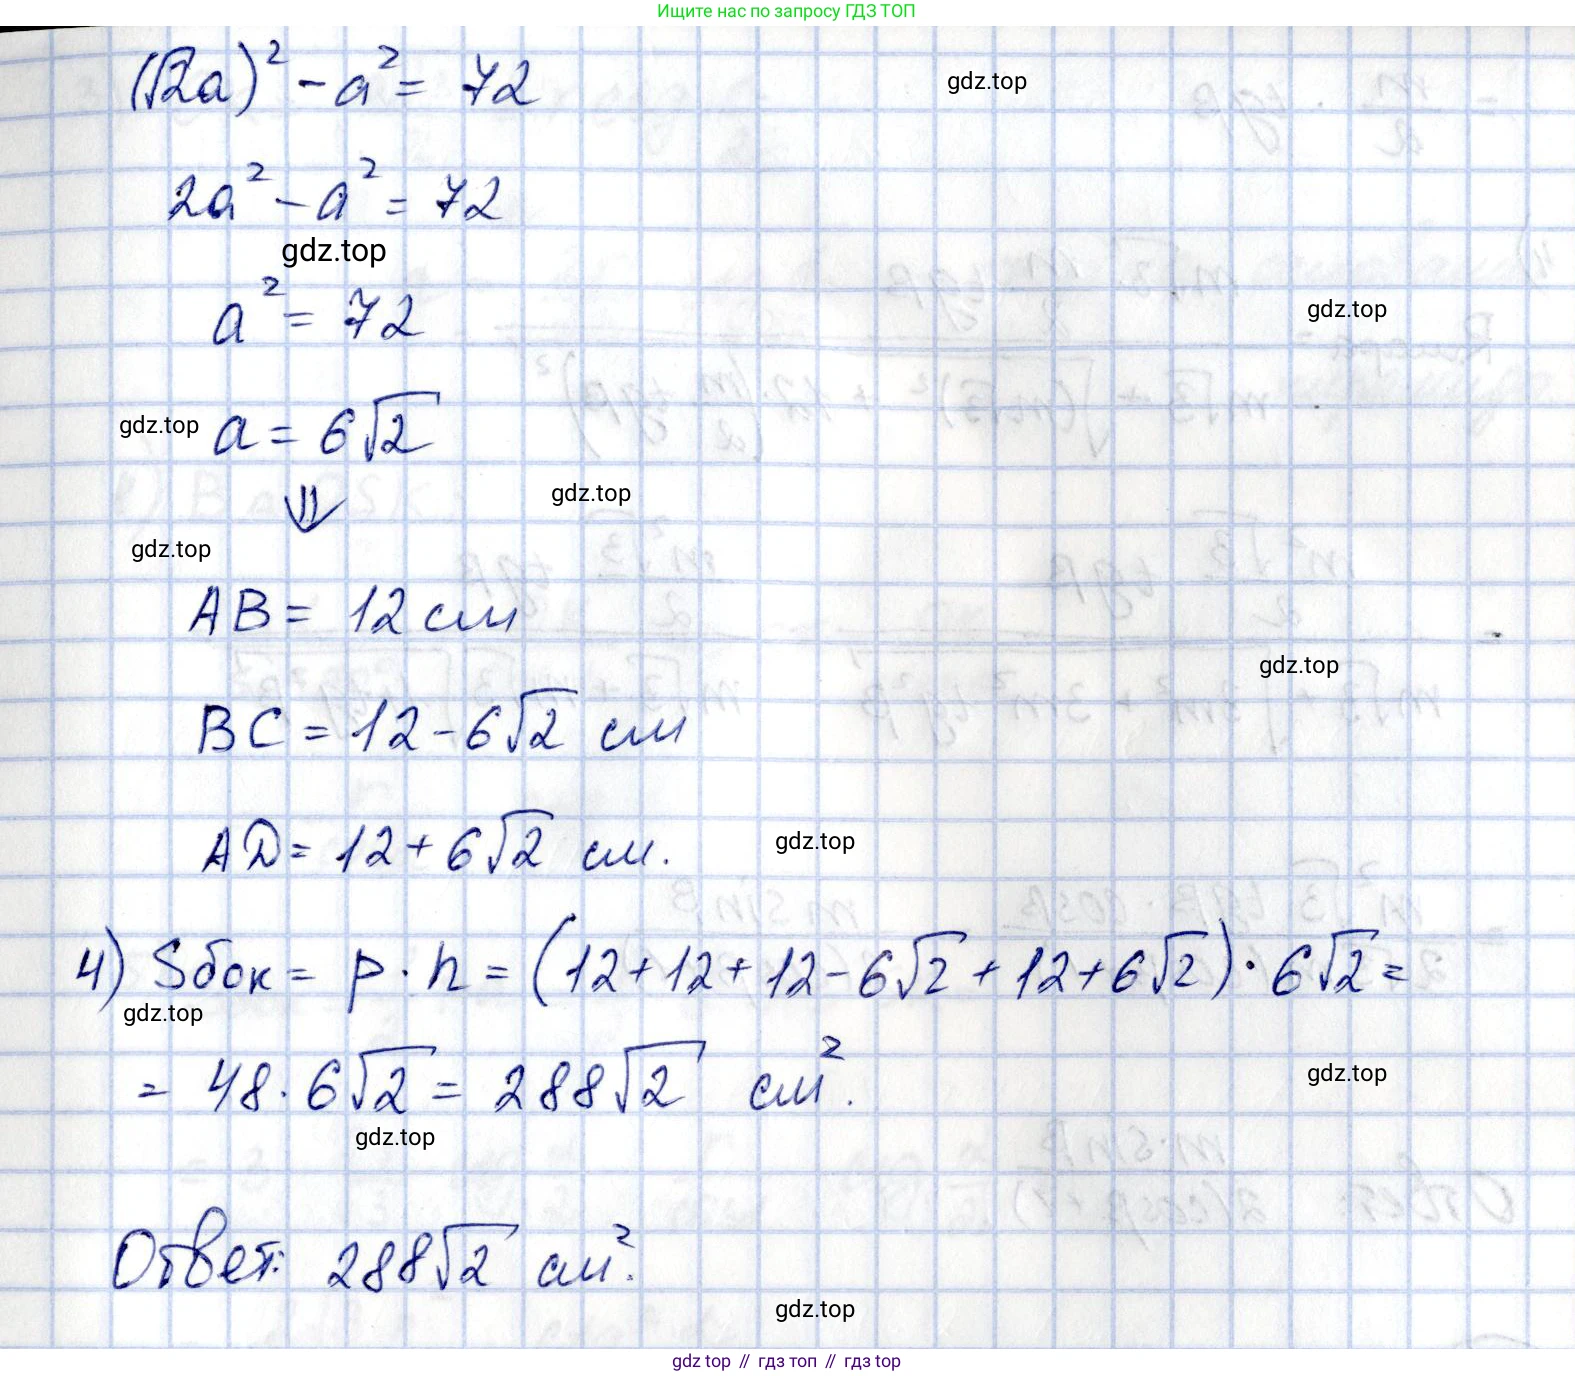 Ищите нас по запросу ГДЗ ТОП
(√2a)² - a² = 72
gdz.top
2a² - a² = 72
gdz.top
a² = 72
gdz.top
gdz.top
a = 6√2
⇓
gdz.top
gdz.top
AB = 12 см
gdz.top
BC = 12 - 6√2 см
AD = 12 + 6√2 см.
gdz.top
4) Sбок = p · h = (12 + 12 + 12 - 6√2 + 12 + 6√2) · 6√2 =
gdz.top
= 48 · 6√2 = 288√2 см².
gdz.top
gdz.top
Ответ: 288√2 см².
gdz.top
gdz top // гдз топ // гдз top